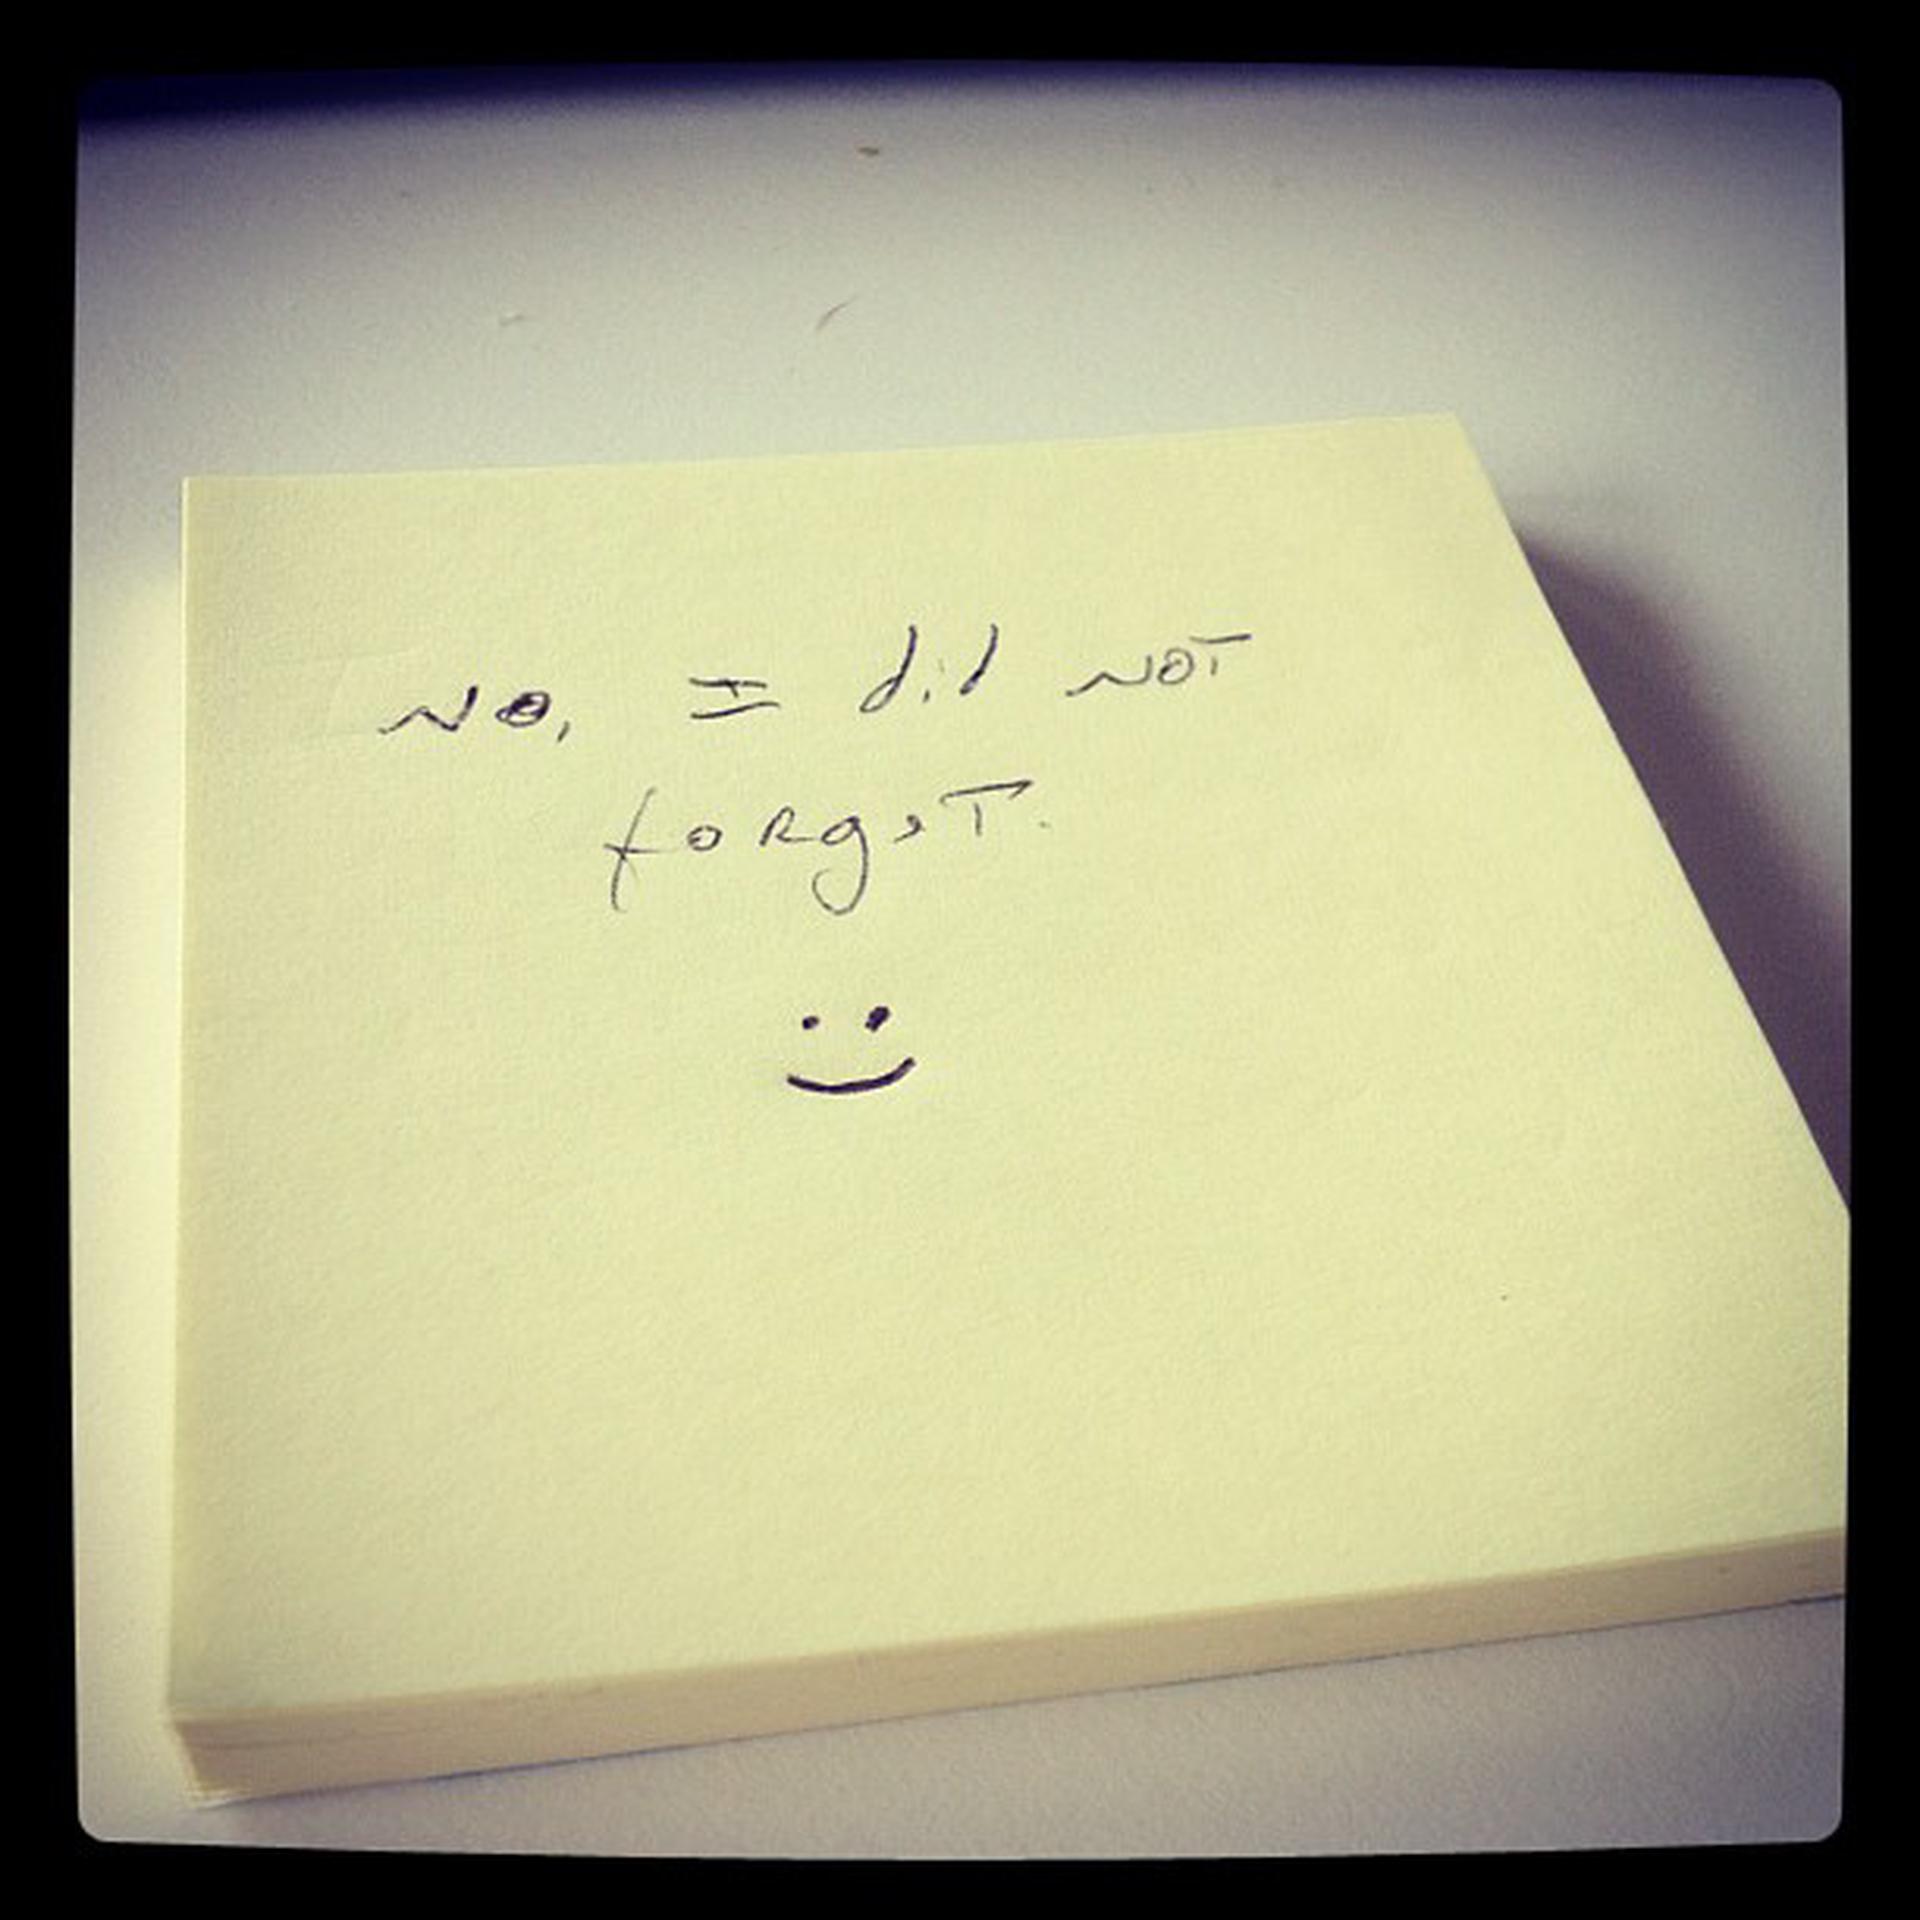 No, I did NOT
forget.